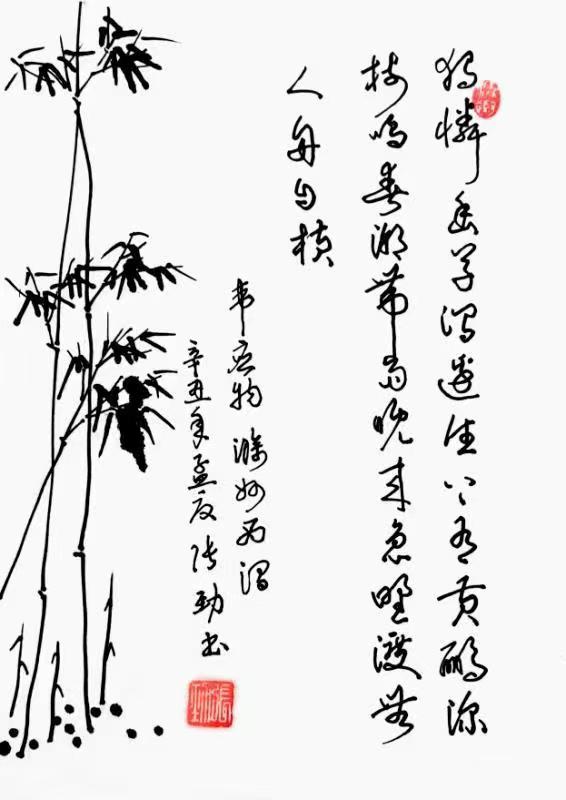 独憐幽草涧边生上有黄鹂深
树鸣春潮带雨晚来急野渡無
人舟自横
韦应物滁州西涧
辛丑年孟夏张劲书